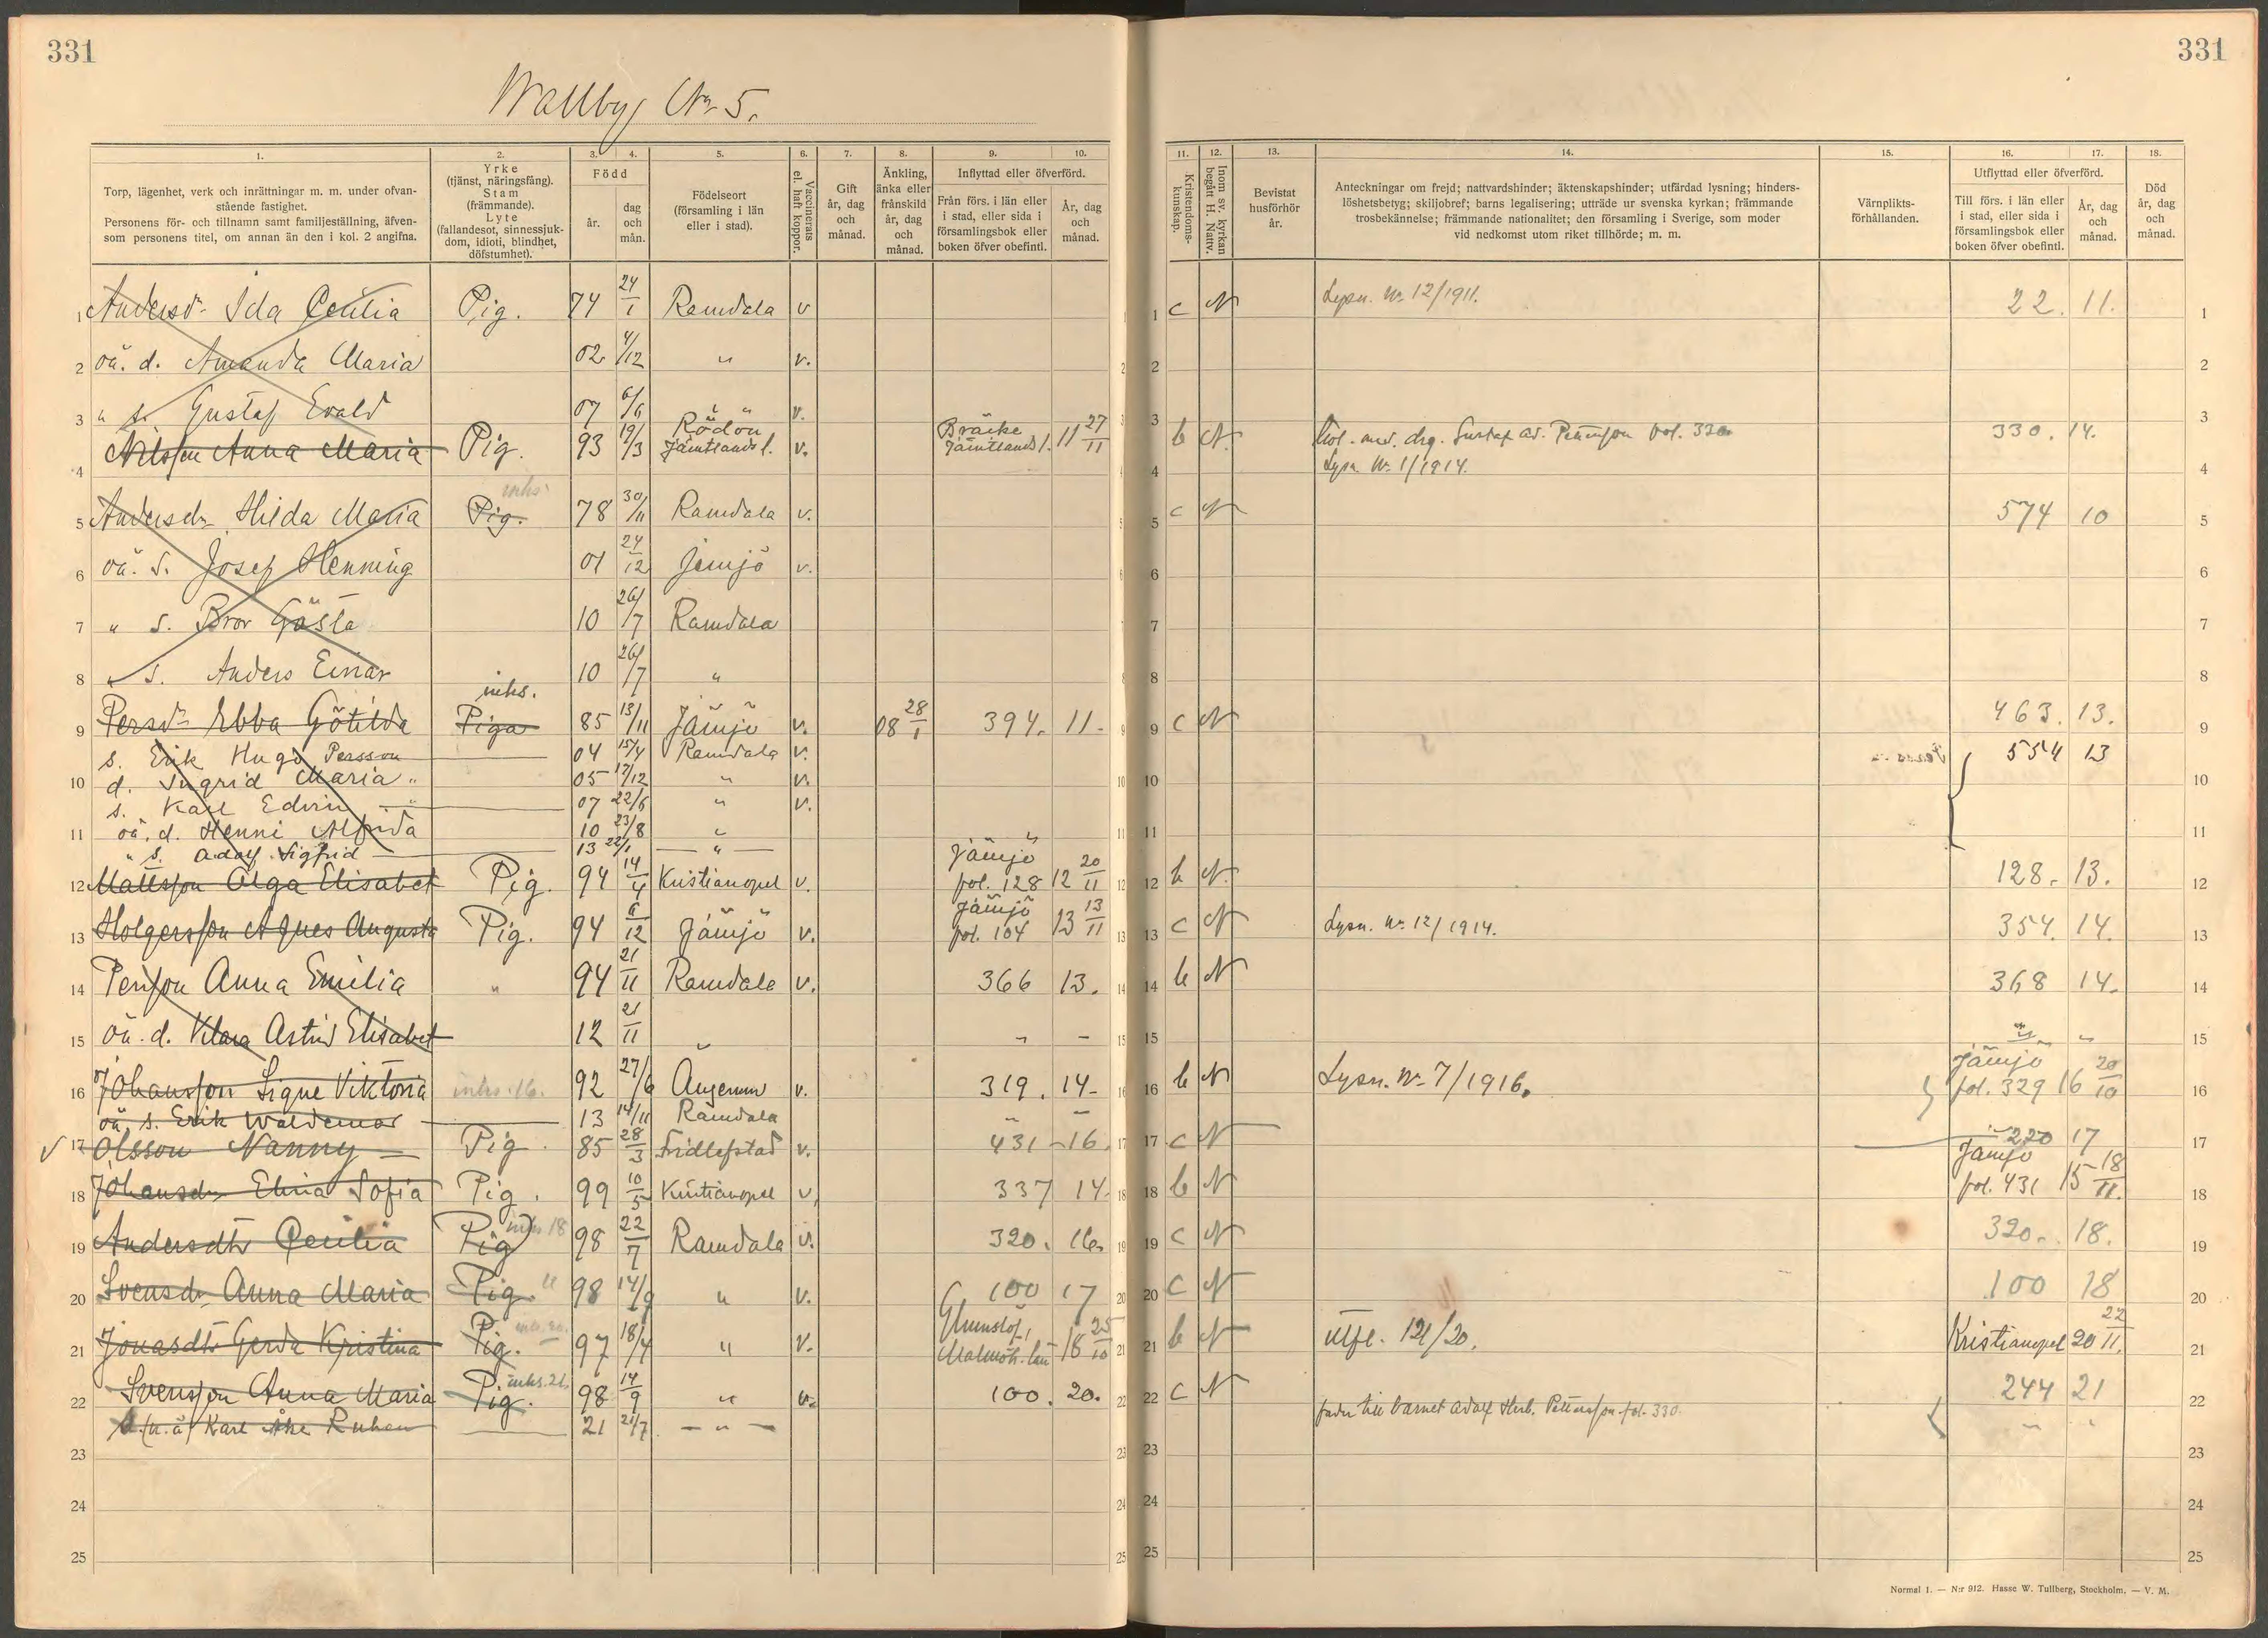 331
331
Wallby No 5.
1. 2. 3. 4. 5. 6. 7. 8. 9. 10.
Torp, lägenhet, verk och inrättningar m. m. under ofvan-
stående fastighet.
Personens för- och tillnamn samt familjeställning, äfven-
som personens titel, om annan än den i kol. 2 angifna.
Yrke
(tjänst, näringsfång).
Stam
(främmande).
Lyte
(fallandesot, sinnessjuk-
dom, idioti, blindhet,
döfstumhet).
Född
år.
dag
och
mån.
Födelseort
(församling i län
eller i stad).
Vaccinerats
el. haft koppor.
Gift
år, dag
och
månad.
Änkling,
änka eller
frånskild
år, dag
och
månad.
Inflyttad eller öfverförd.
Från förs. i län eller
i stad, eller sida i
församlingsbok eller
boken öfver obefintl.
År, dag
och
månad.
11. 12. 13. 14. 15. 16. 17. 18.
Kristendoms-
kunskap.
Inom sv. kyrkan
begått H. Nattv.
Bevistat
husförhör
år.
Anteckningar om frejd; nattvardshinder; äktenskapshinder; utfärdad lysning; hinders-
löshetsbetyg; skiljobref; barns legalisering; utträde ur svenska kyrkan; främmande
trosbekännelse; främmande nationalitet; den församling i Sverige, som moder
vid nedkomst utom riket tillhörde; m. m.
Värnplikts-
förhållanden.
Utflyttad eller öfverförd.
Till förs. i län eller
i stad, eller sida i
församlingsbok eller
boken öfver obefintl.
År, dag
och
månad.
Död
år, dag
och
månad.
1 Andersdr Ida Cecilia Pig. 74 24/1 Ramdala v c N Lysn. No 12/1911. 22. 11. 1
2 oä. d. Amanda Maria 02 4/12 " v. 2
3 " s. Gustaf Evald 07 6/6 " v. 3
4 Nilsson Anna Maria Pig. 93 19/3 Rödön Jämtlands l. v. Bräcke Jämtlands l. 11 27/11 b N. med drg. Gustaf Ad. Petersson fol. 330. 330. 14.
Lysn. No 1/1914. 4
5 Andersdr Hilda Maria Pig. inhs. 78 30/11 Ramdala v. c N 574 10 5
6 oä. s. Josef Henning 01 24/12 Jämjö v. 6
7 " s. Bror Gösta 10 26/7 Ramdala 7
8 " s. Anders Einar 10 26/7 " 8
9 Persdr Ebba Götilda Piga inhs. 85 13/11 Jämjö v. 08 28/1 394. 11. c N 463. 13. 9
s. Erik Hugo Persson 04 15/4 Ramdala v. 554 13
10 d. Ingrid Maria " 05 17/12 " v. 10
s. Karl Edvin " 07 22/6 " v.
11 oä. d. Henni Alfrida 10 23/8 " 11
" s. Adolf Sigfrid 13 22/1 "
12 Mattsson Olga Elisabet Pig. 94 14/4 Kristianopel v. Jämjö fol. 128 12 20/11 b N. 128. 13. 12
13 Holgersson Agnes Augusta Pig. 94 6/12 Jämjö v. Jämjö fol. 104 13 13/11 c N Lysn. No 12/1914. 354. 14. 13
14 Persson Anna Emilia " 94 21/11 Ramdala v. 366 13. b N 368 14. 14
15 oä. d. Klara Astrid Elisabet 12 21/11 " " " " " 15
16 Johansson Signe Viktoria inhs. 16. 92 27/6 Augerum v. 319. 14. b N Lysn. No 7/1916. Jämjö fol. 329 16 20/10 16
oä. s. Erik Waldemar 13 14/11 Ramdala " "
17 Olsson Nanny Pig. 85 28/3 Fridlefstad v. 431 16. c N 220 17 17
18 Johansdr Elina Sofia Pig. 99 10/5 Kristianopel v. 337 14. b N Jämjö fol. 431 15 18/11. 18
19 Andersdtr Cecilia Pig inhs 18 98 22/7 Ramdala v. 320. 16. c N 320. 18. 19
20 Svensdr Anna Maria Pig. " 98 14/9 " v. 100 17 c N 100 18 20
21 Jonasdtr Gerda Kristina Pig. inhs. 20. 97 18/4 " v. Glumslöf, Malmöh. län 18 25/10 b N utfl. 121/20. Kristianopel 20 22/11. 21
22 Svensson Anna Maria Pig. inhs. 21. 98 14/9 " v. 100. 20. c N 244 21 22
(u. ä) Karl Åke Ruben 21 21/7 " fader till barnet Adolf Herb. Pettersson fol. 330. " "
23 23
24 24
25 25
Normal 1. — N:r 912. Hasse W. Tullberg, Stockholm. — V. M.